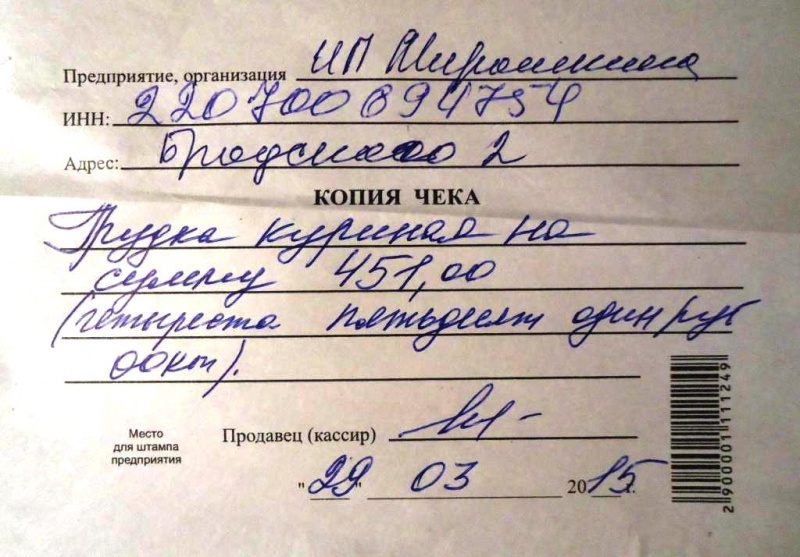 Предприятие, организация ИП Мирошкина
ИНН: 220700694754
Адрес: Бродского 2
КОПИЯ ЧЕКА
Грудка куриная на
сумму 451,00
(четыреста пятьдесят один руб
00коп).
Место
для штампа
предприятия
Продавец (кассир)
"29" 03 2015г.
2900001111249